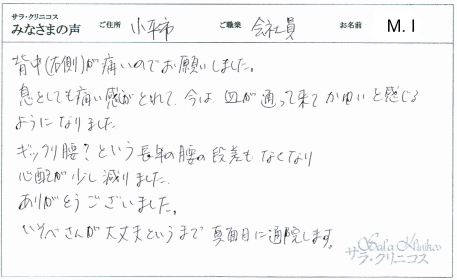 サラ・クリニコス
みなさまの声 ご住所 小平市 ご職業 会社員 お名前 M.I
背中(右側)が痛いのでお願いしました。
息をしても痛い感がとれて、今は、血が通って来てかゆいと感じる
ようになりました
ギックリ腰?という長年の腰の段差もなくなり
心配が少し減りました。
ありがとうございました。
いそべさんが大丈夫というまで真面目に通院します。
Sala Klinikos
サラ・クリニコス